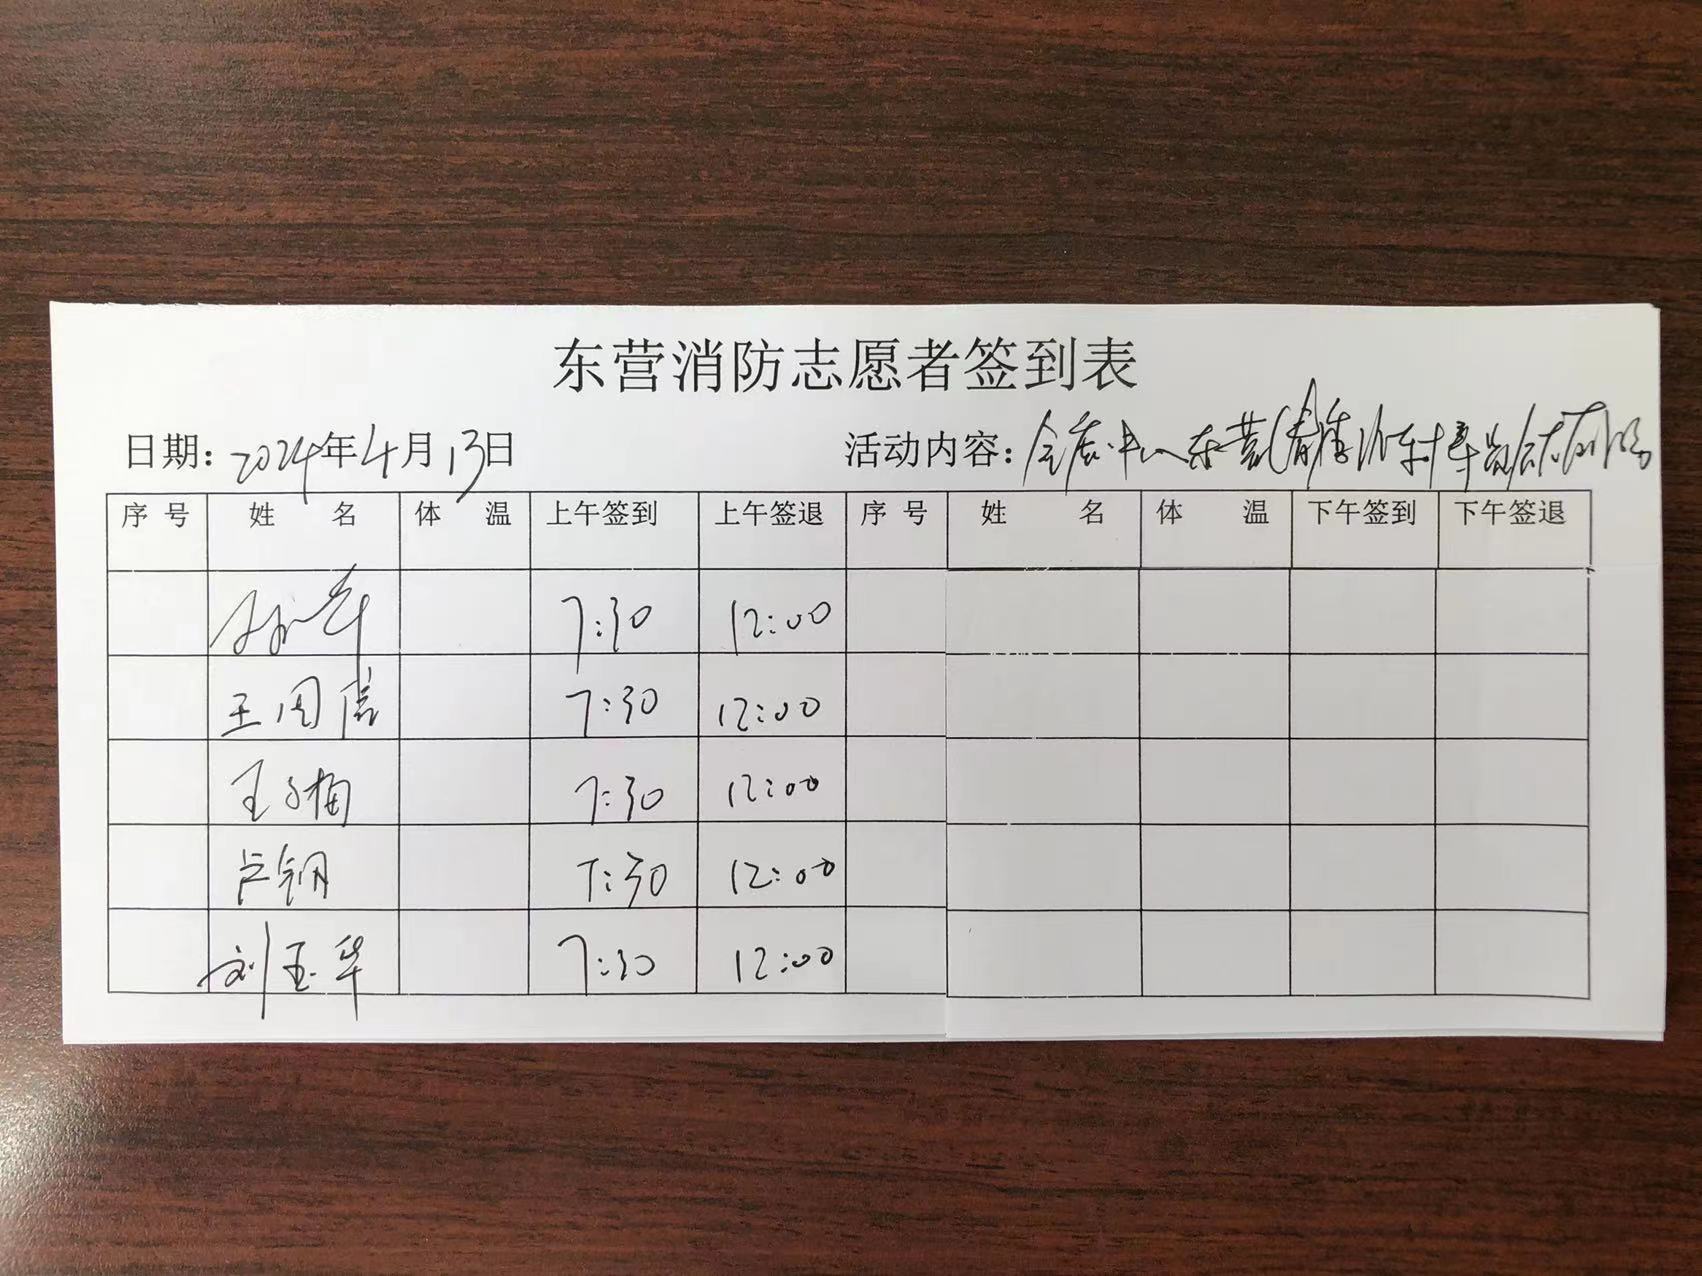 东营消防志愿者签到表
日期：2024年4月13日 活动内容：会展中心东营(春季)汽车博览会
序号 姓名 体温 上午签到 上午签退 序号 姓名 体温 下午签到 下午签退
7:30 12:00
王周信 7:30 12:00
王子梅 7:30 12:00
卢钢 7:30 12:00
刘玉华 7:30 12:00